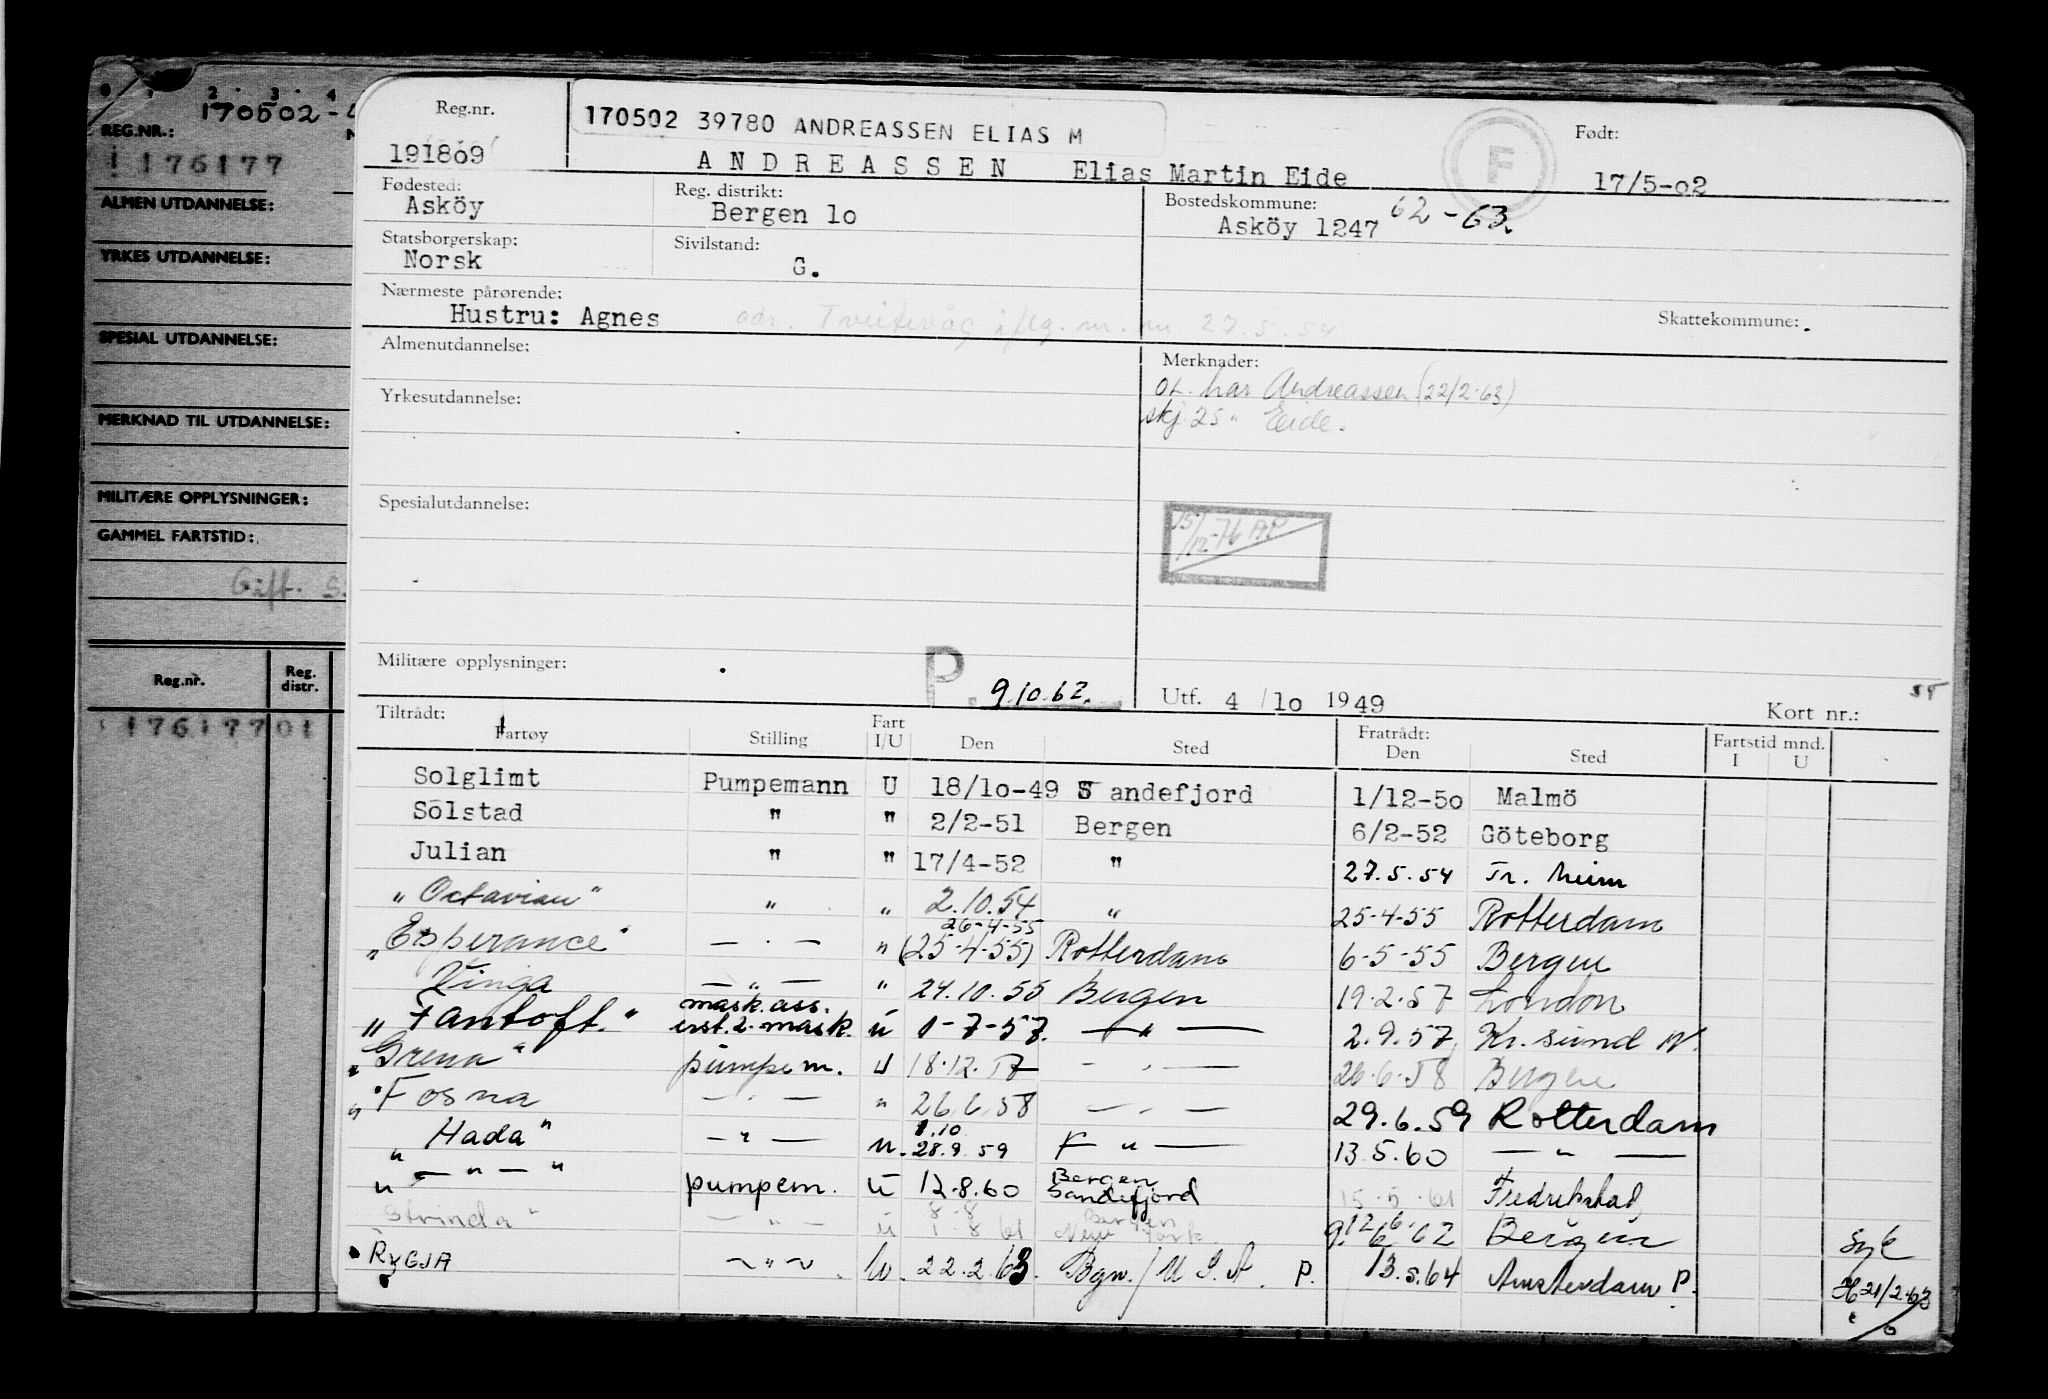 0 1 2 3 4
170502-
REG.NR.:
176177
ALMEN UTDANNELSE:
YRKES UTDANNELSE:
SPESIAL UTDANNELSE:
MERKNAD TIL UTDANNELSE:
MILITÆRE OPPLYSNINGER:
GAMMEL FARTSTID:
Gift.
Reg.nr. Reg. distr.
17617701
Reg.nr. 170502 39780 ANDREASSEN ELIAS M F Født:
191869 ANDREASSEN Elias Martin Eide 17/5-02
Fødested: Reg. distrikt: Bostedskommune:
Asköy Bergen lo Asköy 1247 62-63
Statsborgerskap: Sivilstand:
Norsk G.
Nærmeste pårørende:
Hustru: Agnes adr. Tveitevåg iflg. m. 27.5.54 Skattekommune:
Almenutdannelse: Merknader:
har Andreassen (22/2-63)
Yrkesutdannelse: skj. 25 " Eide.
Spesialutdannelse:
15/12-76
Militære opplysninger: P. 9.10.62.
Utf. 4/lo 1949 Kort nr.:
Tiltrådt: Fratrådt: Fartstid mnd.
Fartøy Stilling Fart I/U Den Sted Den Sted I U
Solglimt Pumpemann U 18/lo-49 Sandefjord 1/12-5o Malmö
Solstad " " 2/2-51 Bergen 6/2-52 Göteborg
Julian " " 17/4-52 " 27.5.54 Tr. heim
"Octavian" " " 2.10.54 " 25-4-55 Rotterdam
26-4-55
"Esperance" — . — " (25-4-55) Rotterdam 6-5-55 Bergen
Vinga — " — " 24.10.55 Bergen 19.2.57 London
mask.ass.
"Fantoft." erst. 2. mask. u 1-7-57. — " — 2.9.57 Kr. sund N.
"Grena" pumpem. u 18.12.57 — . — 26.6.58 Bergen
"Fosna — . — " 26.6.58 — . — 29.6.59 Rotterdam
1.10
"Hada" — " — u. 28.9.59 — " — 13.5.60 — " —
Bergen
" — " — " pumpem. u 12.8.60 Sandefjord 15-5-61 Fredrikstad
8-8 Bergen
Strinda" — " — u 1.8.61 New York. Bergen Syk
• RYGJA ~ " ~ U. 22.2.63. Bgn./U.S.A. P. 13.5.64 Amsterdam P. 21/2-63